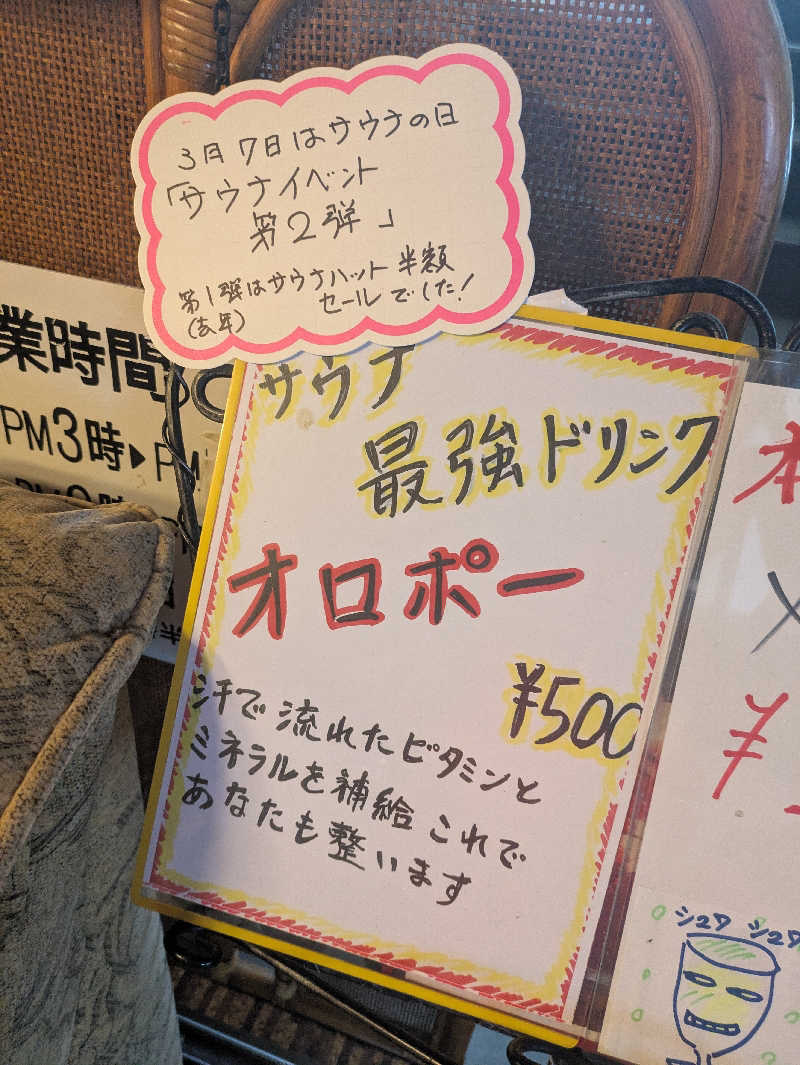 3月7日はサウナの日
「サウナイベント
第2弾」
第1弾はサウナハット半額
(去年) セールでした!
業時間
PM3時▶PM
サウナ
最強ドリンク
オロポー
¥500
汗で流れたビタミンと
ミネラルを補給これで
あなたも整います
本
¥
シュワ シュワ